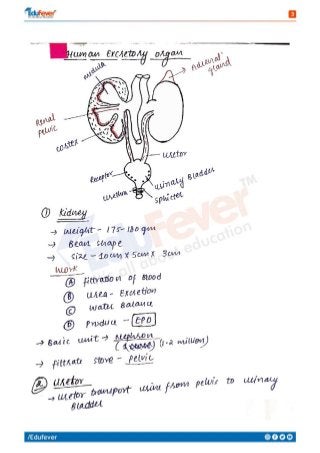 EduFever
3
Human Excretory organ
medulla
adrenal gland
Renal pelvic
cortex
uretor
Receptor
urinary Bladder
urethra
sphicter
① Kidney
→ weight - 175-180 gm
→ Bean shape
→ Size - 10cm x 5cm x 3cm
work
Ⓐ filtration of Blood
Ⓑ urea - Excretion
Ⓒ water Balance
Ⓓ Produce - EPO
→ Basic unit → Nephron
(1.2 million)
→ filtrate store - pelvic
② uretor
→ uretor transport urine from pelvic to urinary
Bladder
EduFever™
all about education
/Edufever